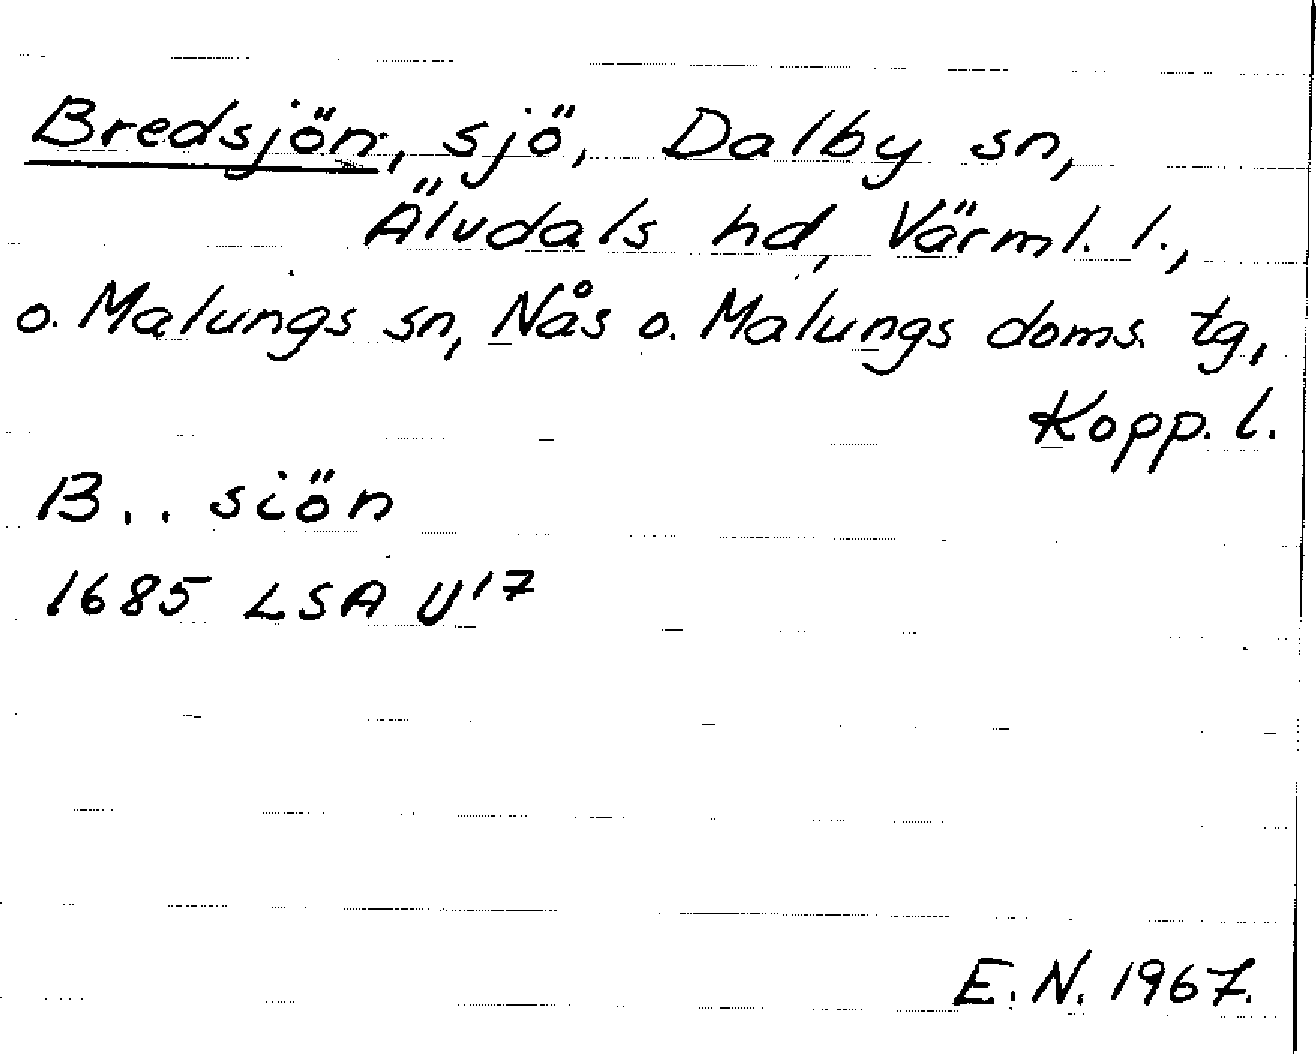 Bredsjön, sjö, Dalby sn,
Älvdals hd, Värml. l.,
o. Malungs sn, Nås o. Malungs doms. tg,
Kopp. l.
B.. siön
1685 LSA U17
E.N. 1967.